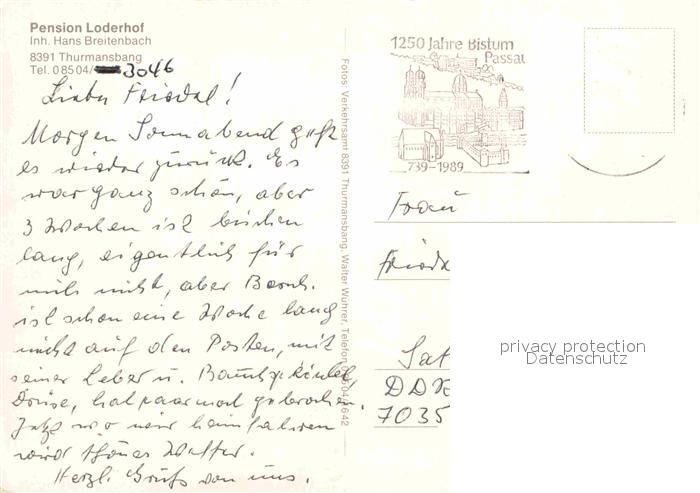 Pension Loderhof
Inh. Hans Breitenbach
8391 Thurmansbang
Tel. 08504/ 3046
Liebe Friedel!
Morgen Sonnabend geht
es wieder zurück. Es
war ganz schön, aber
3 Wochen ist bischen
lang, eigentlich für
mich nicht, aber Bernh.
ist schon eine Woche lang
nicht auf den Posten, mit
seiner Leber u.
hat paarmal gebrochen.
Jetzt wo wir heimfahren
wird schönes Wetter.
Herzl. Grüße von uns.
Fotos: Verkehrsamt 8391 Thurmansbang, Walter Wuhrer, Telefon 08504/1642
1250 Jahre Bistum
Passau
739-1989
Frau
Fried
DDR
7035
privacy protection
Datenschutz